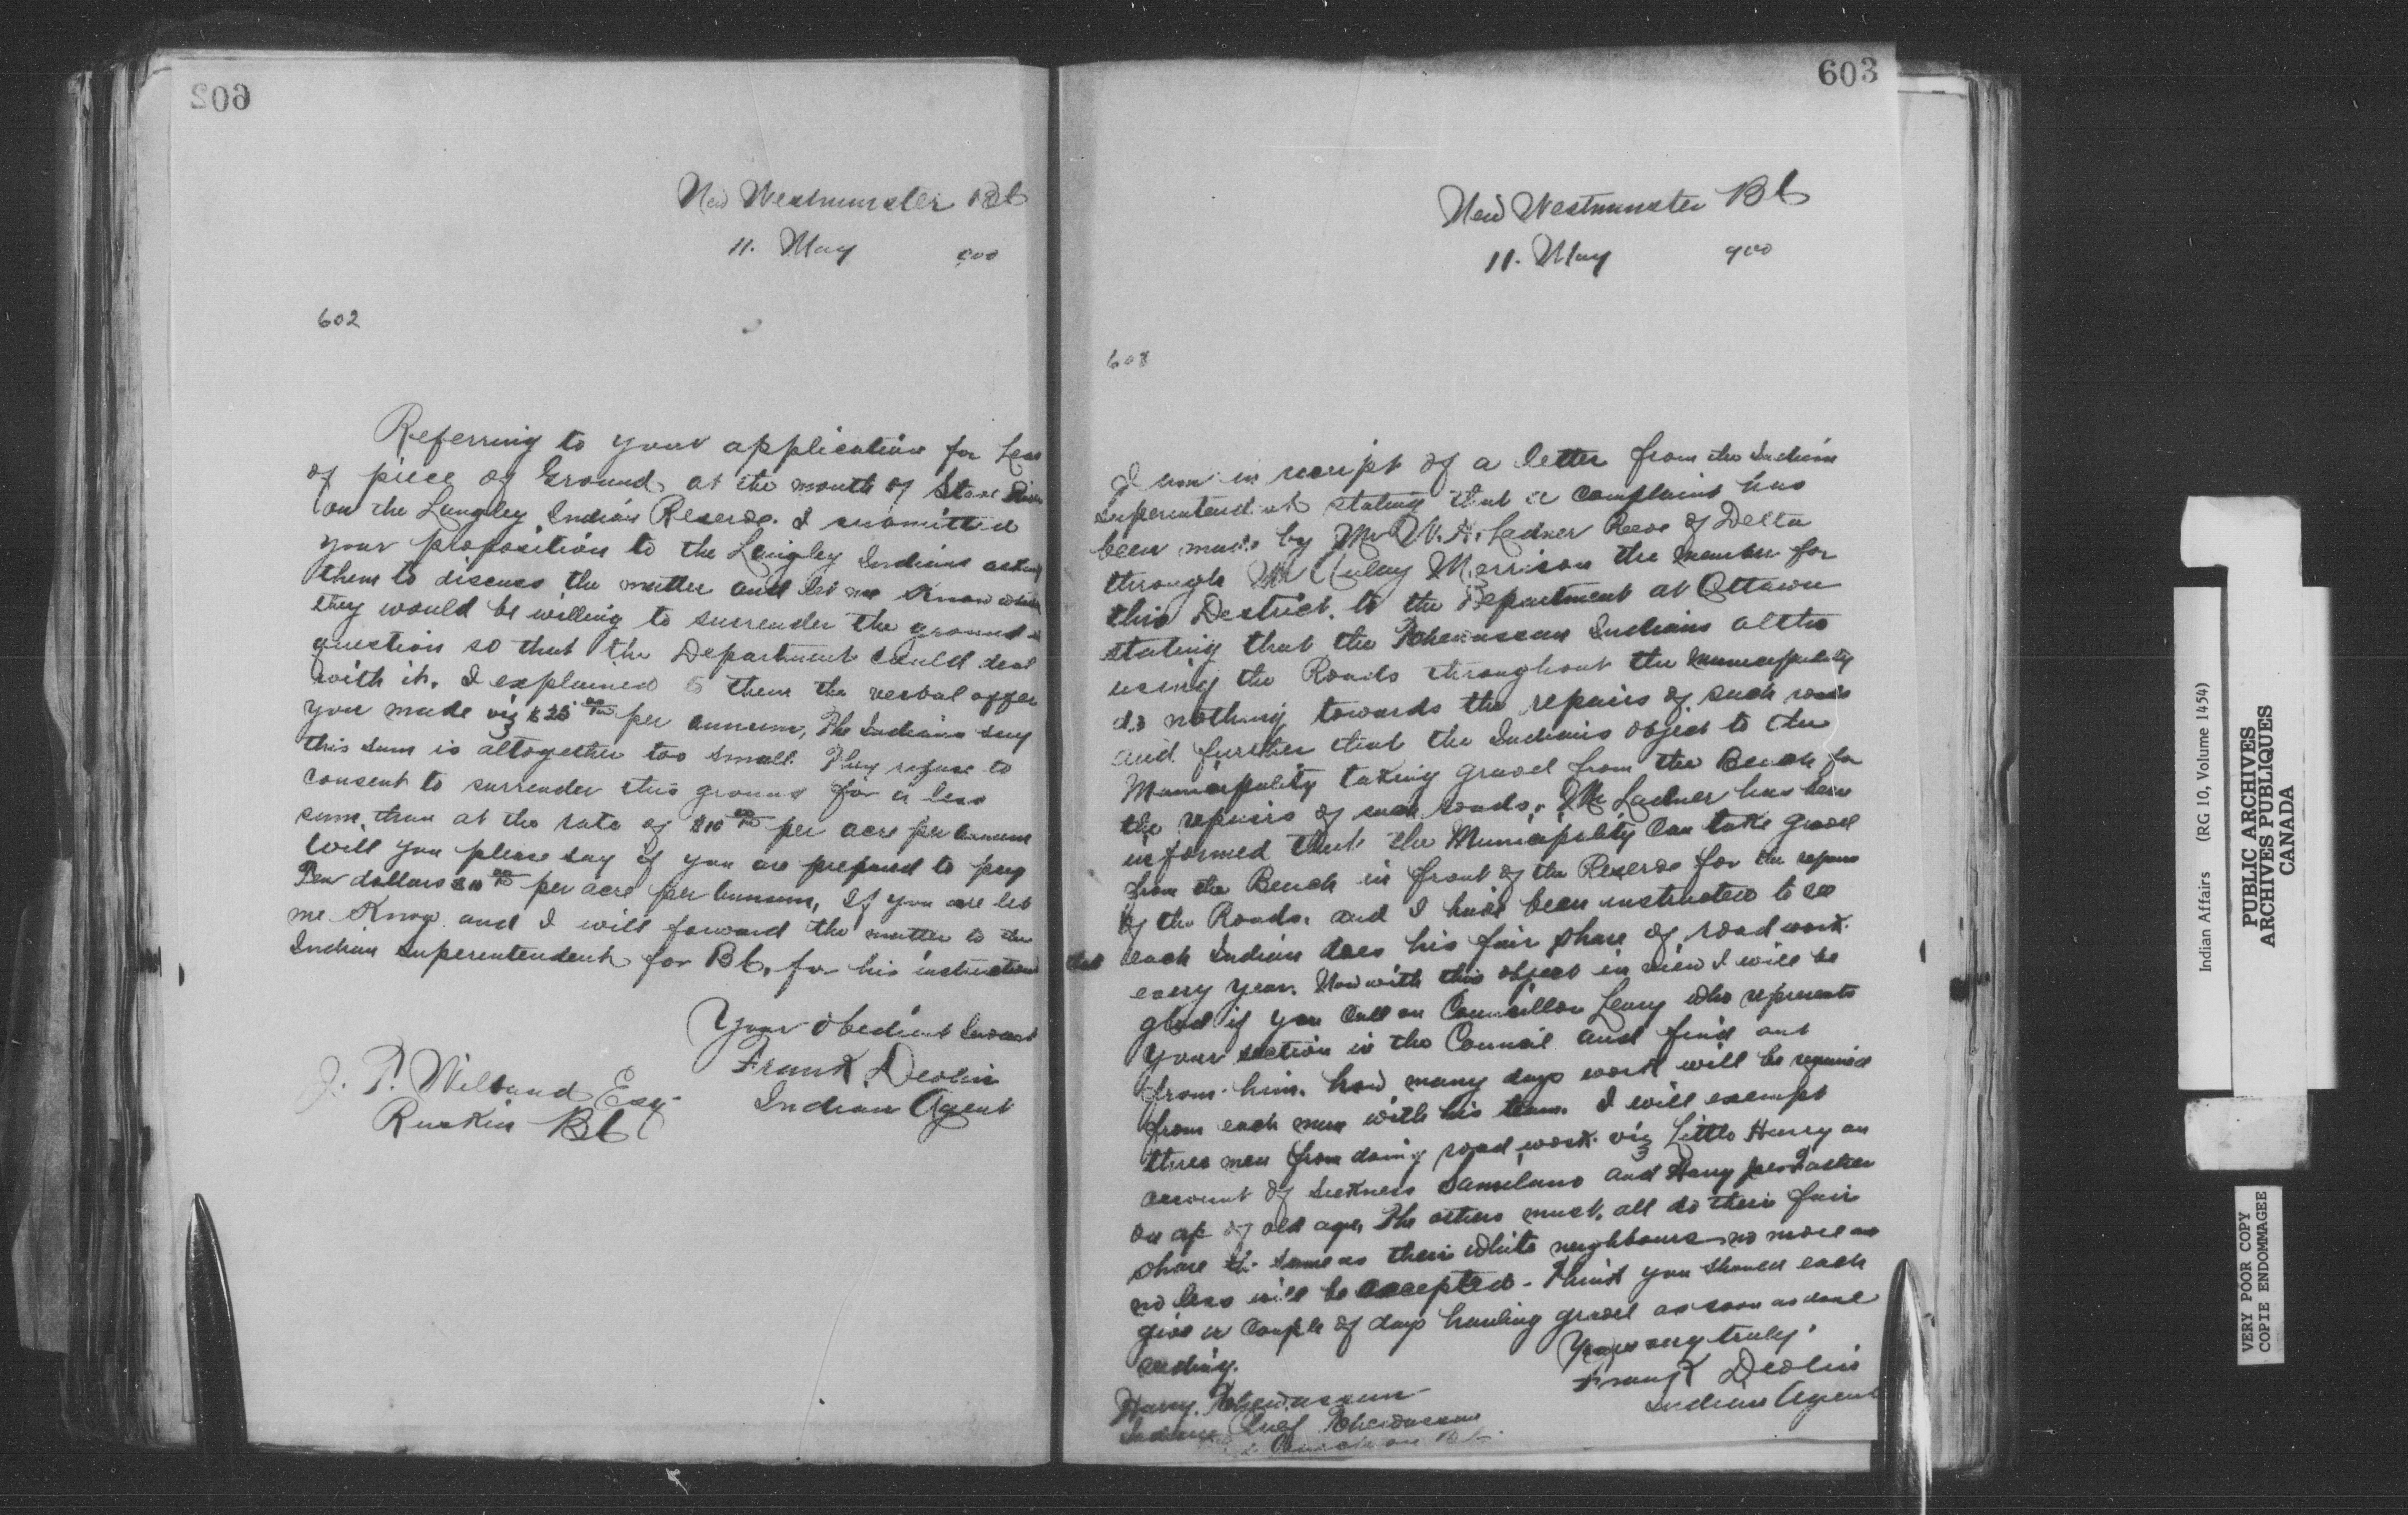 602
New Westminster BC
11. May 900
602
Referring to your application for Lease
of piece of Ground at the mouth of Stave River
on the Langley Indian Reserve. I submitted
your proposition to the Langley Indians asking
them to discuss the matter and let me Know whether
they would be willing to surrender the ground in
question so that the Department could deal
with it. I explained to them the verbal offer
you made viz $25 00/100 per annum, The Indians say
this sum is altogether too small. They refuse to
consent to surrender this ground for a less
sum than at the rate of $10 00/100 per acre per annum
Will you please say if you are prepared to pay
Ten dollars $10 00/100 per acre per annum, If you are let
me Know and I will forward the matter to the
Indian Superintendent for BC, for his instructions
Your obedient Servant
Frank Devlin
Indian Agent
J. P. Wilband Esq
Ruskin BC
603
New Westminster BC
11. May 900
603
I am in receipt of a letter from the Indian
Superintendent stating that a complaint has
been made by Mr W. H. Ladner Reeve of Delta
through Mr Aulay Morrison the member for
this District, to the Department at Ottawa
stating that the Tchewassan Indians altho
using the Roads throughout the Municipality
do nothing towards the repairs of such roads
and further that the Indians object to the
Municipality taking gravel from the Beach for
the repairs of such roads. Mr Ladner has been
informed that the Municipality can take gravel
from the Beach in front of the Reserve for the repairs
of the Roads. and I have been instructed to see
that each Indian does his fair share of road work
every year. Now with this object in view I will be
glad if you call on Councillor Leary who represents
your section in the Council and find out
from him. how many days work will be required
from each man with his team. I will exempt
three men from doing road work viz Little Harry on
account of Sickness Samilano and Harry Joes Father
on a/c of old age, The others must, all do their fair
share the same as their white neighbours no more and
no less will be accepted - I think you should each
give a couple of days hauling gravel as soon as done
seeding.
Yours very truly
Frank Devlin
Indian Agent
Harry Tchewassan
Indian Chief Tchewassan
BC
Indian Affairs (RG 10, Volume 1454)
PUBLIC ARCHIVES
ARCHIVES PUBLIQUES
CANADA
VERY POOR COPY
COPIE ENDOMMAGEE